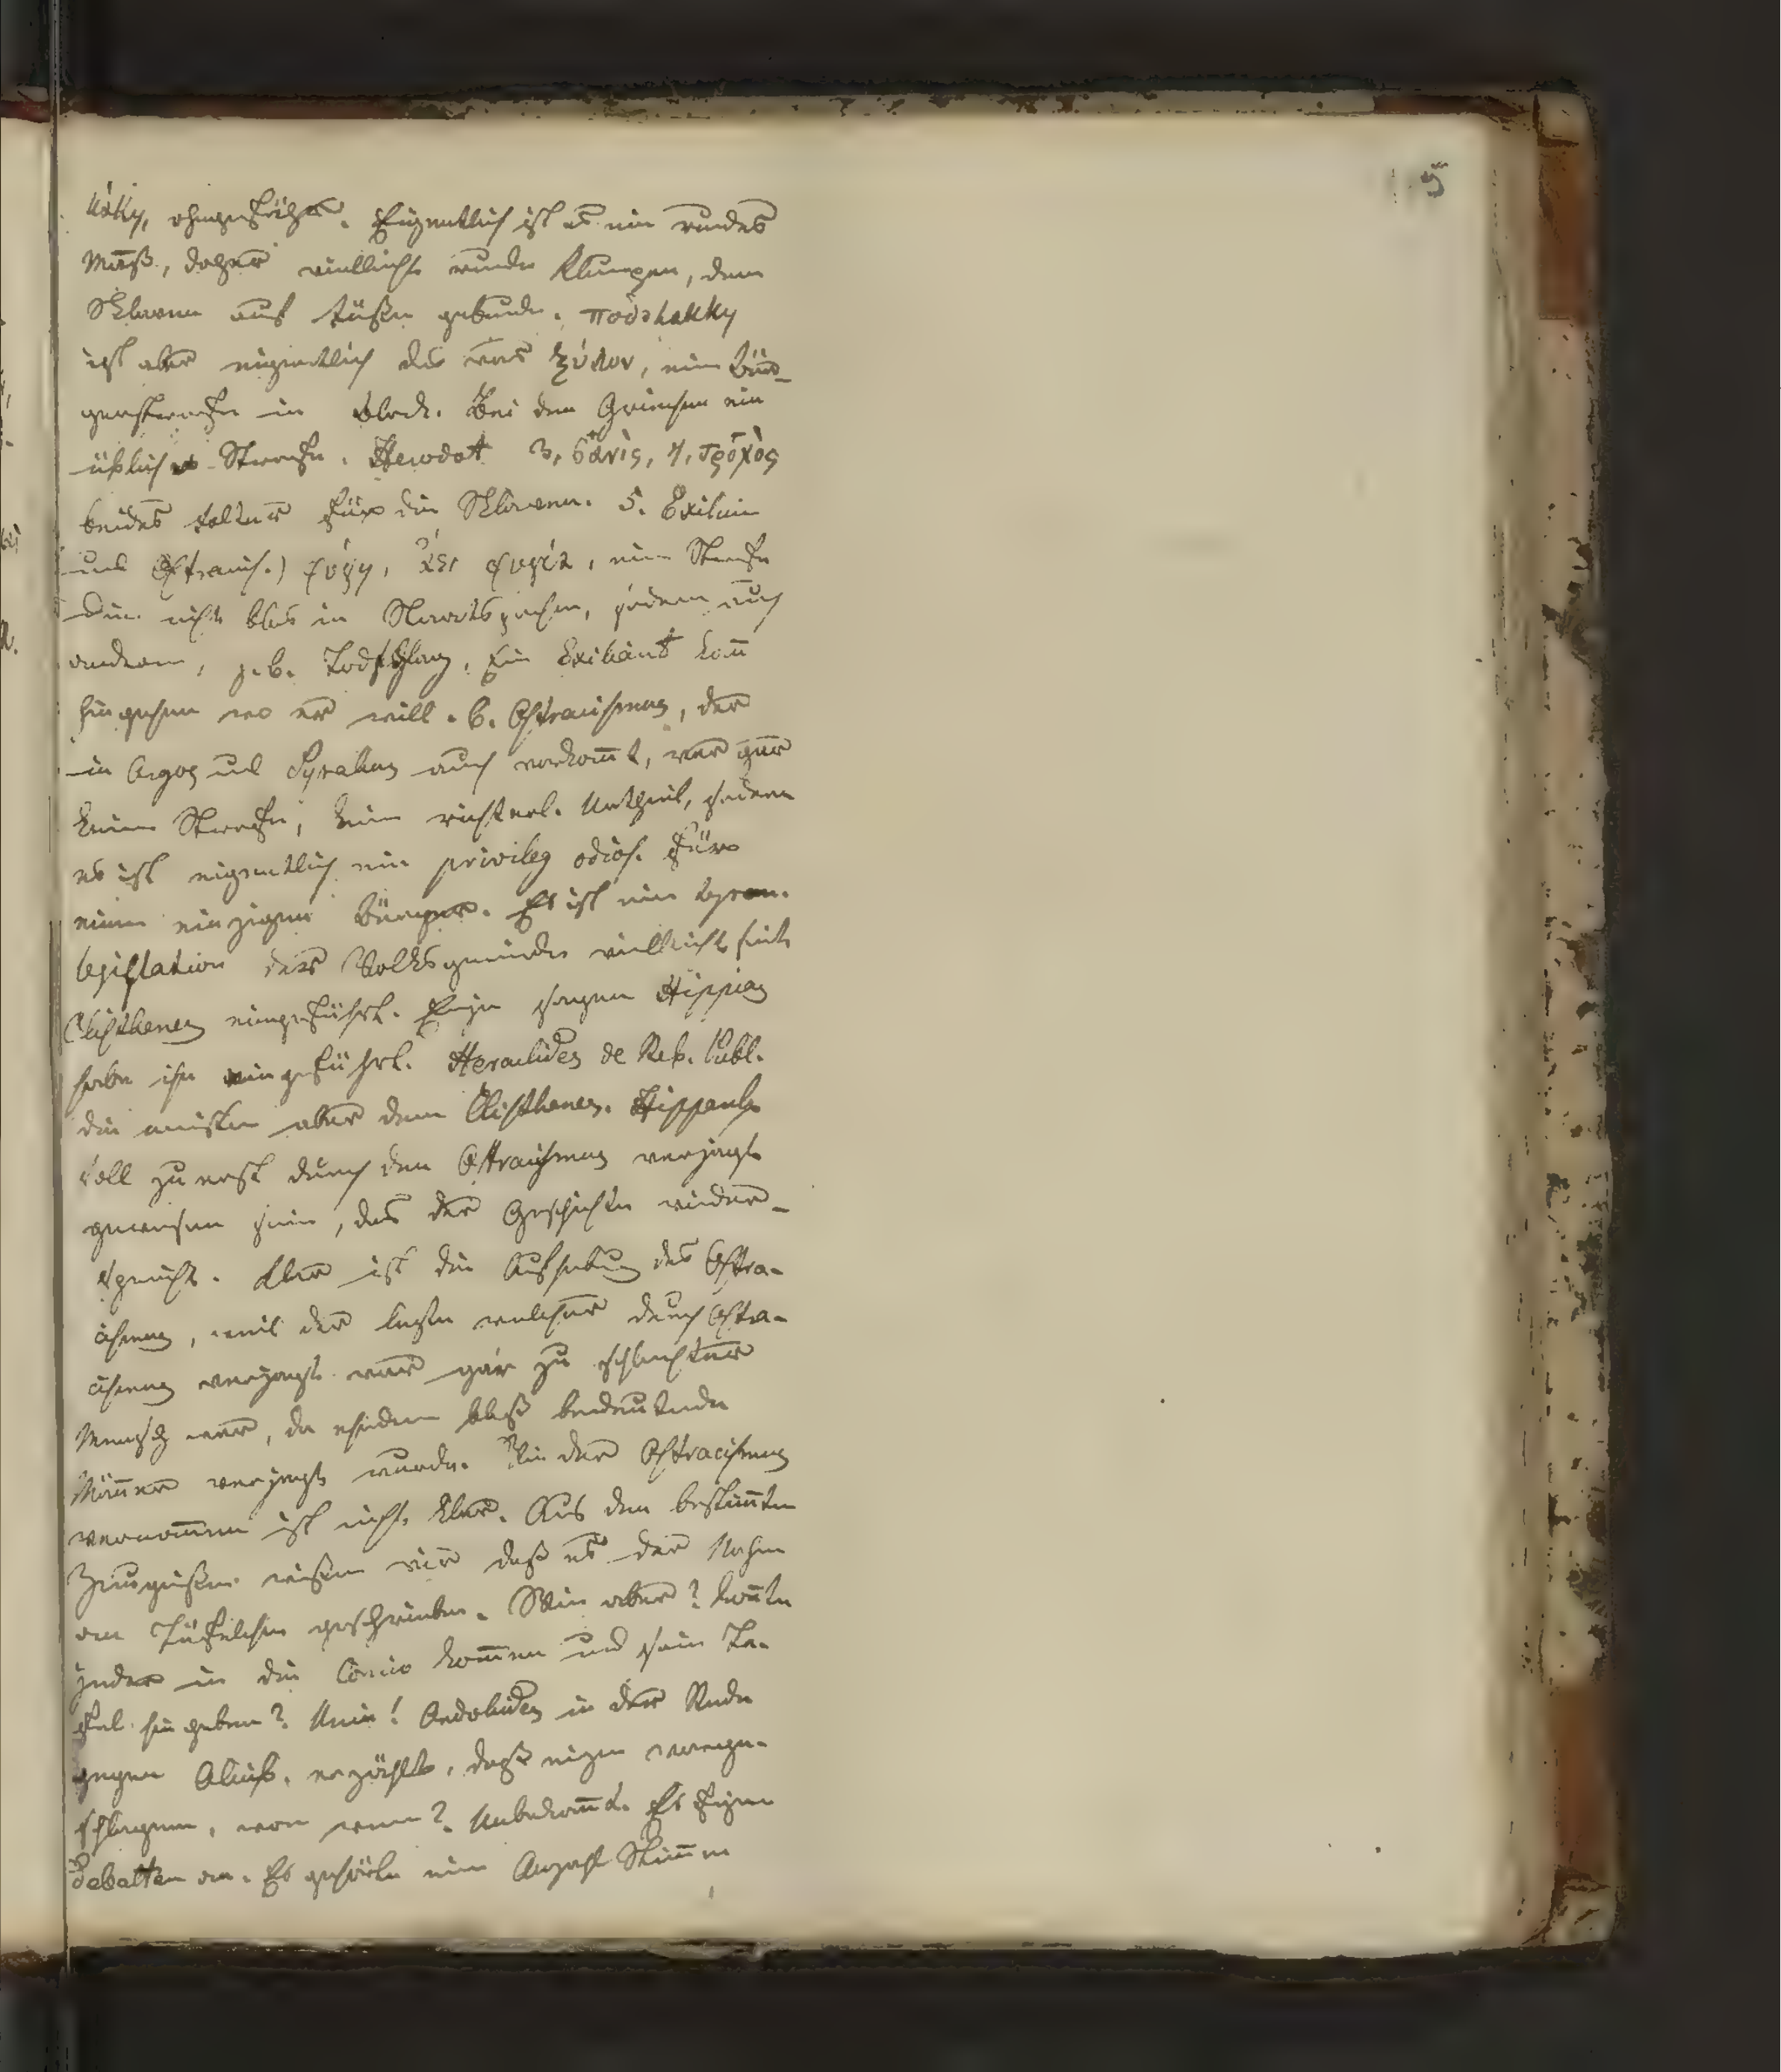 5
Eigentlich ist es ein rundes
Maaß, daher vielleicht runde Klumpen, dem
Sklaven auf Füßen gebunden. ποδοκακκη
ist aber eigentlich das was ξύλον, eine Bür-
gerstrafe in Block. Bei den Griechen ein
übliche Strafe. Herodot 3, σανὶς, 4, τρόχὸς
beides Foltur für die Sklaven. 5. Exilium
und Ostracis.) φύγη, ἀει φυγία, eine Strafe
die nicht blos in Staatssachen, sondern auch
andern, z. b. Todschlag. Ein Exiliant kann
hingehen wo er will. 6. Ostracismus, der
in Argos und Syrakus auch vorkommt, war gar
keine Strafe, kein richterl. Urtheil, sondern
es ist eigentlich ein privileg odios. für
einen einzigen Bürger. Es ist eine tyran.
legislation der Volksgemeinde vielleicht seit
Clisthenes eingeführt. Einige sagen Hippias
habe ihn eingeführt. Heraclides de Reb. Publ.
die meisten aber dem Clisthenes. Hipparch
soll zuerst durch den Ostracismus verjagt
gewesen sein, das der Geschichte wieder-
spricht. Klar ist die Aufhebung des Ostra-
cismus, weil der letzte welcher durch Ostra-
cismus verjagt war gar zu schlechter
Mensch war, da ehedem bloß bedeutende
Männer verjagt wurde. Wie der Ostracismus
vernommen ist nicht klar. Aus den bestimmten
Zeugnißen wißen wir daß es der Nahme
an Täfelchen geschrieben. Wie aber? konnte
jeder in die Comio kommen und sein Ta-
fel hingeben? Nein! Andokides in der Rede
gegen Alcib. erzählt, daß einige vorge-
schlagen, von wem? Unbekannt. Es fingen
Debatten an. Es gehörte eine Anzahl Stimmen